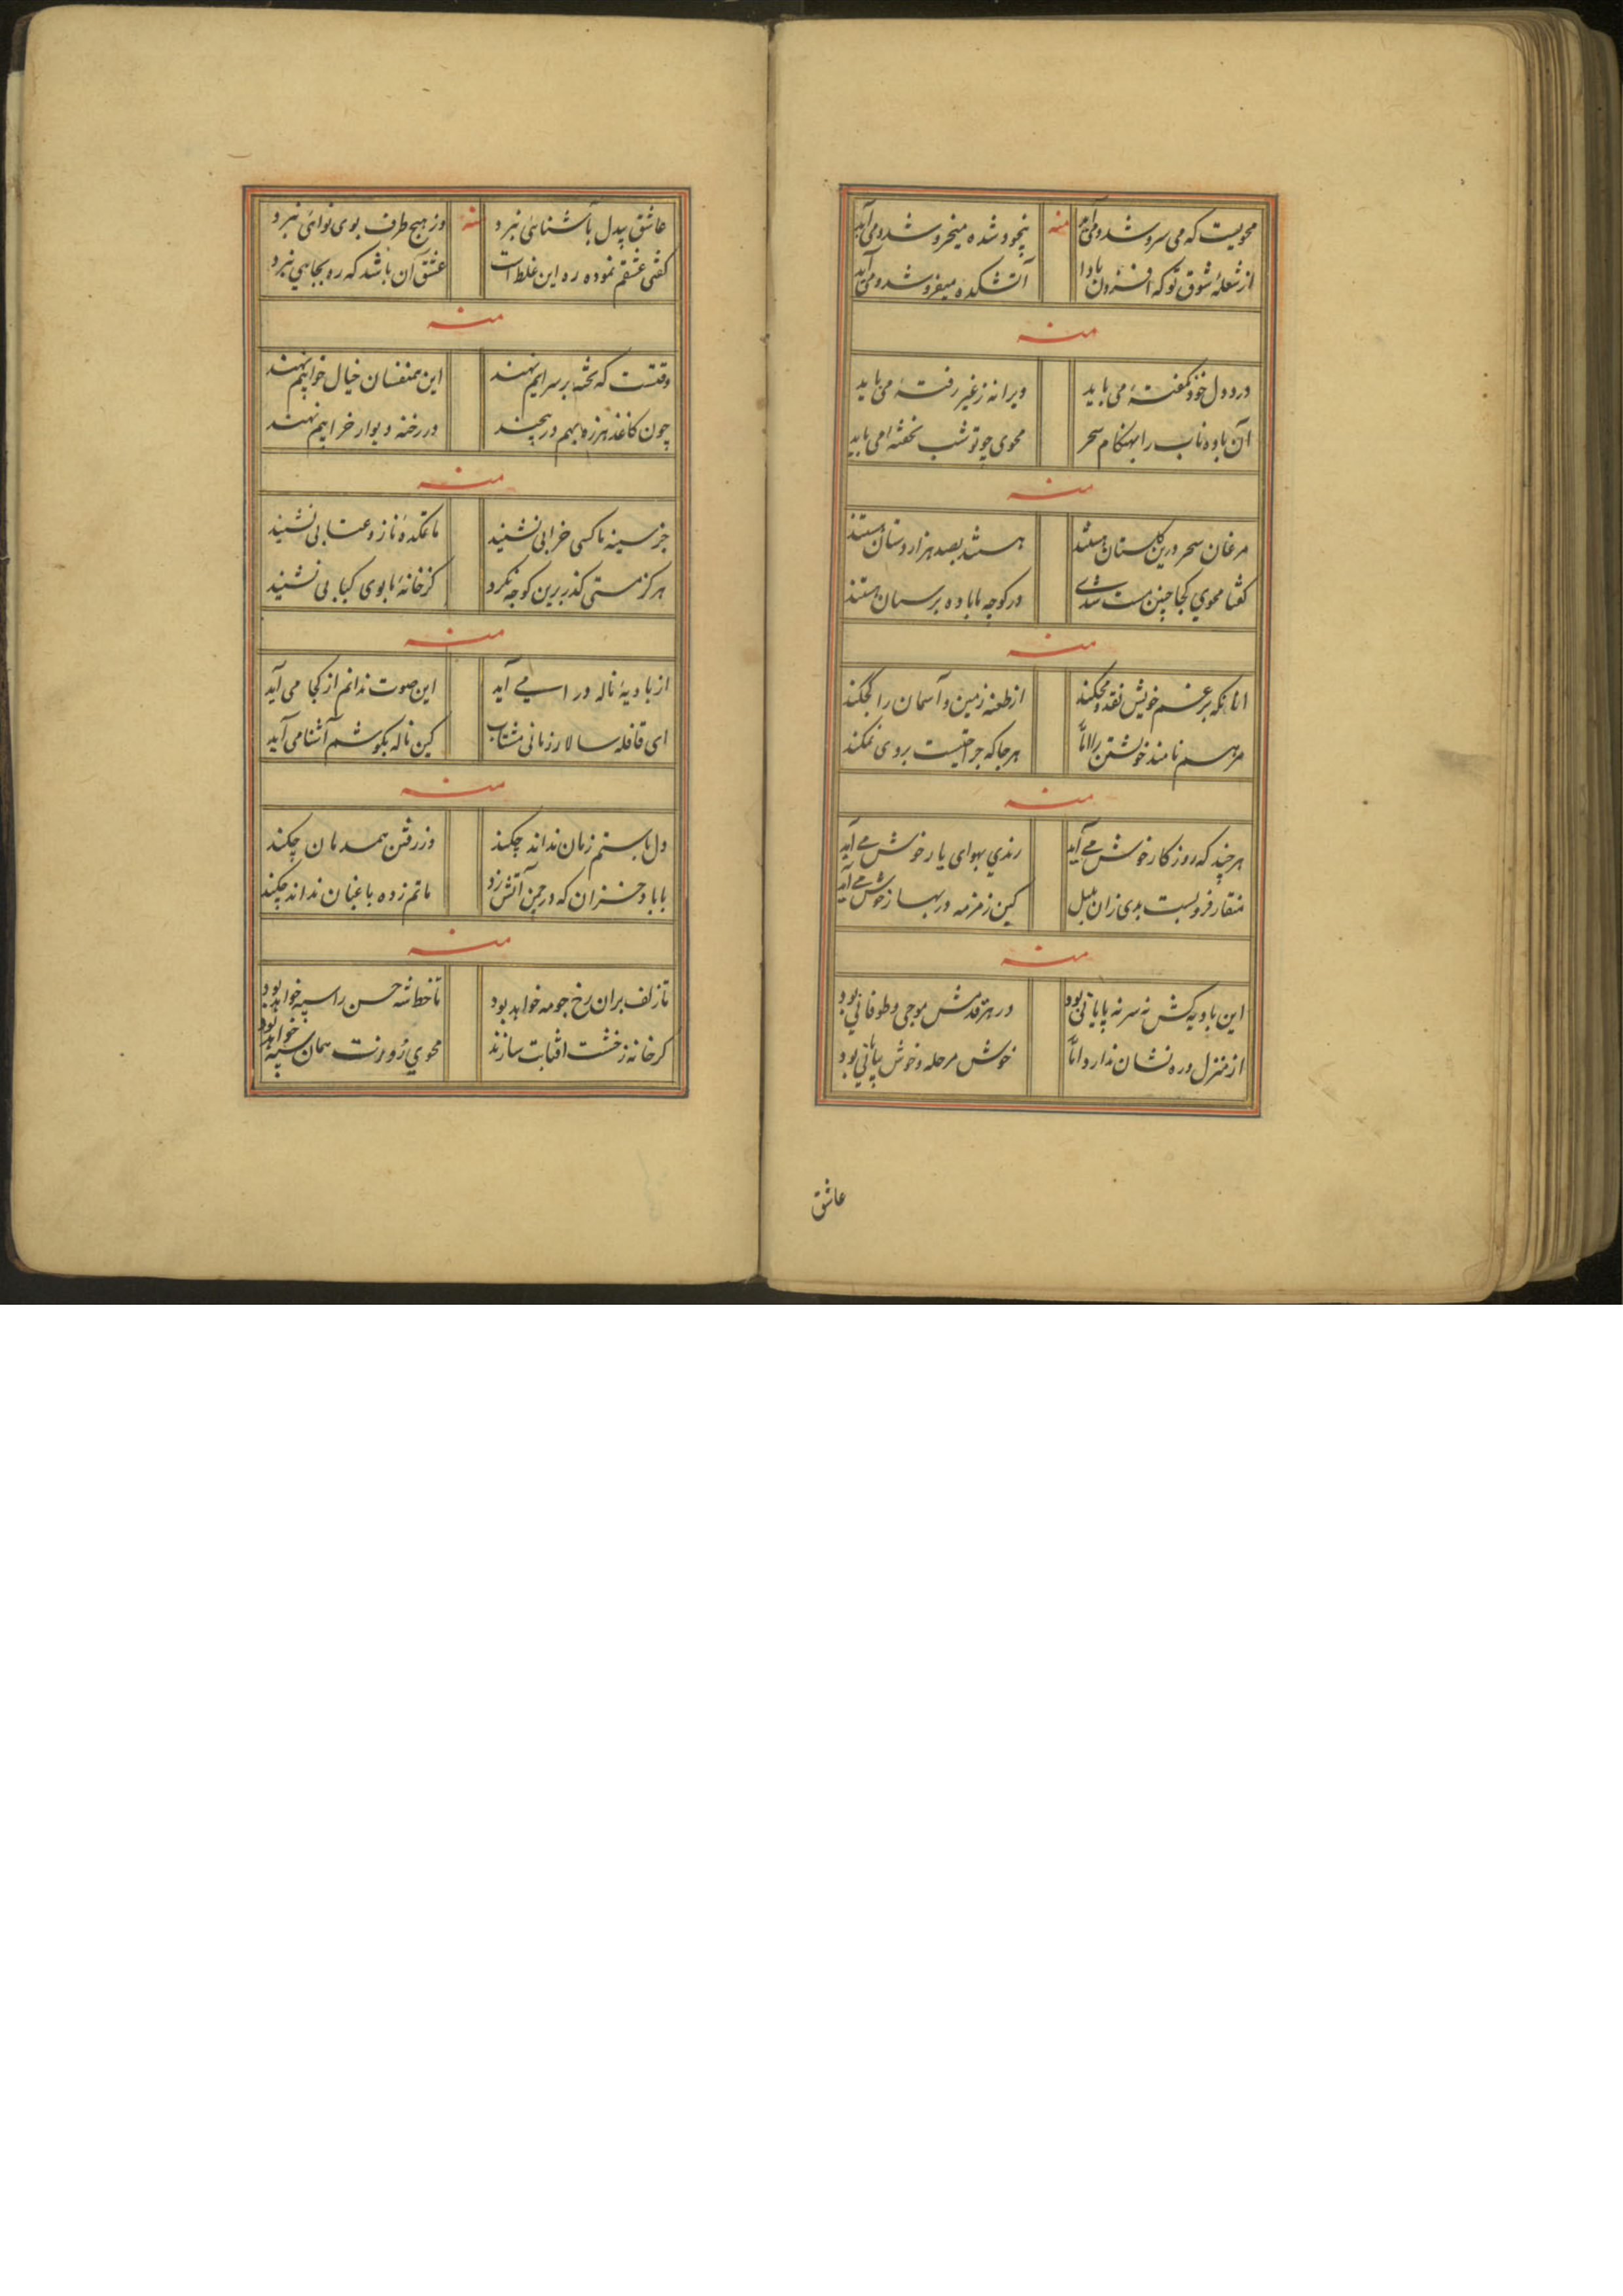 محویت که می سروشد و می آید منه بیخود شده میخروشد و می آید
از شعلهٔ شوق تو که افزون بادا آتشکده میفروشد و می آید
منه
درد دل خود نگفتهٔ می باید ویرانه ز غیر رفتهٔ می باید
آن باده ناب را بهنکام سحر محوی چو تو شب نخفتهٔ می باید
منه
مرغان سحر درین کلستان هستند هستند بصد هزار دستان هستند
کفتا محوی کجا چنین مست شدی در کوچه ما باده پرستان هستند
منه
انانکه بر غم خویش نقد محکند از طعنه زمین و آسمان را بحکند
مرهم نامند خویشتن را اما هر جا که جراحتیست بروی نمکند
منه
هر چند که روزکار خوش می آید رندی بهوای یار خوش می آید
منقار فرو بست بدی زان بلبل کین زمزمه در بهار خوش می آید
منه
این بادیه کش نه سر نه پایانی بود در هر قدمش موجی و طوفانی بود
از منزل و ره نشان ندارد اما خوش مرحله و خوش بیابانی بود
عاشق
عاشق بیدل بآشنائی نبرد منه وز هیچ طرف بوی نوائی نبرد
کفتی عشقم نموده ره این غلط است عشق آن باشد که ره بجایی نبرد
منه
وقتست که تخته بر سرایم نهند این همنفسان خیال خوابم نهند
چون کاغذ هرزه بهم در پیچند در رخنه دیوار خرابم نهند
منه
جز سینه ما کسی خرابی نشنید ماتمکده ناز و عتابی نشنید
هرکز مستی کذر برین کوچه نکرد کز خانهٔ ما بوی کبابی نشنید
منه
از بادیهٔ ناله درا می آید این صوت ندانم از کجا می آید
ای قافله سالار زمانی مشتاب کین ناله بکوشم آشنا می آید
منه
دل با ستم زمان نداند چکند وز رفتن همدمان چکند
با باد خزان که در چمن آتش زد ماتم زده باغبان نداند چکند
منه
تا زلف بران رخ چو مه خواهد بود تا خط شه حسن را سپه خواهد بود
کر خانه ز خشت افتابت سازند محوی روزت همان سیه خواهد بود